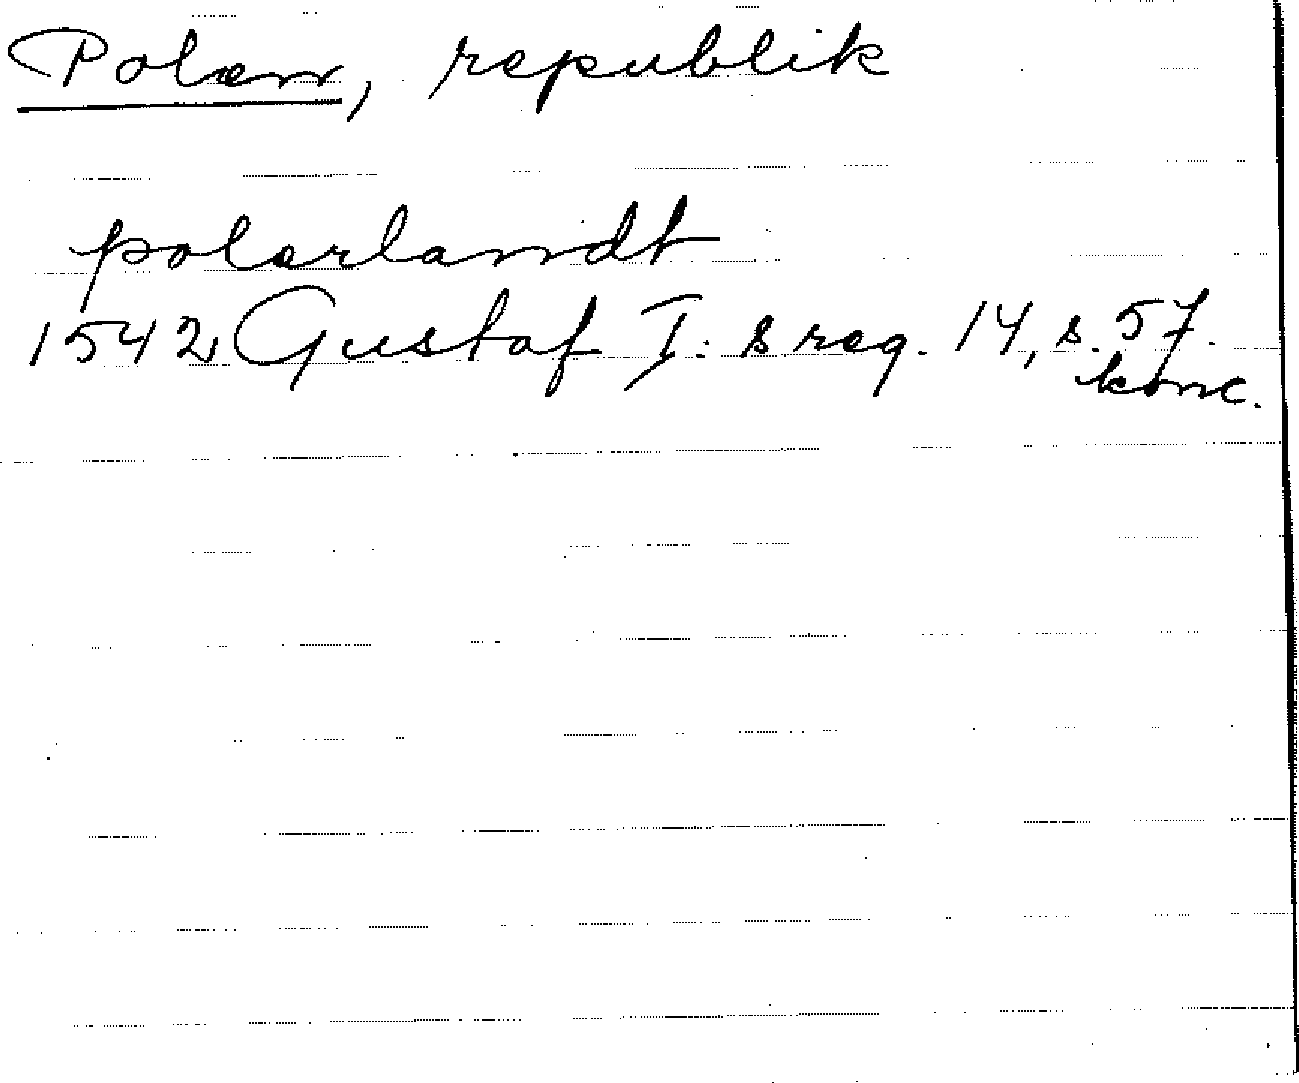 Polen, republik
polerlandt
1542 Gustaf I:s reg. 14, s. 57.
konc.